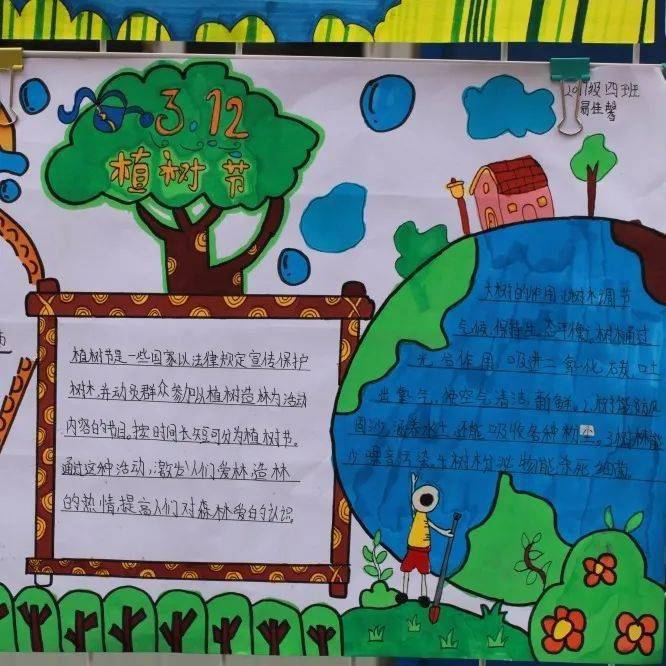 3.12
植树节
2017级四班
易佳馨
植树节是一些国家以法律规定宣传保护
树木,并动员群众参加以植树造林为活动
内容的节日。按时间长短可分为植树节。
通过这种活动,激发人们爱林造林
的热情,提高人们对森林爱的认识
大树的作用:1.树木调节
气候,保持生态平衡,树木通过
光合作用,吸进二氧化碳,吐
出氧气,使空气清洁新鲜。2.树能防风
固沙,涵养水土,还能吸收各种粉尘。3.树林能
少噪音污染。4.树木分泌物能杀死细菌。